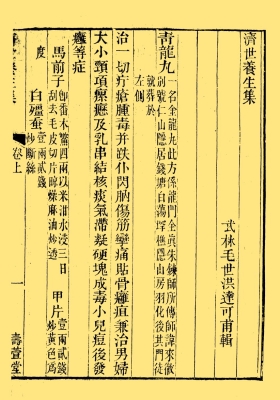 濟世養生集
武林毛世洪達可甫輯
青龍丸
一名金龍丸此方係龍門全眞朱鍊師所傳師諱來徹
別號仁山隱居錢塘白蕩墿樵隱山房羽化後其門徒
就葬於
左側
治一切疔瘡腫毒并跌仆閃朒傷筋攣痛貼骨癰疽兼治男婦
大小頸項瘰癧及乳串結核痰氣滯凝硬塊成毒小兒痘後發
癰等症
馬前子
卽番木鱉四兩以米泔水浸三日
刮去毛皮切片晒燥麻油炒透
甲片
壹兩貳錢
炒黃色爲
度
白殭蠶
壹兩貳錢
炒斷絲
卷上
一
壽萱堂